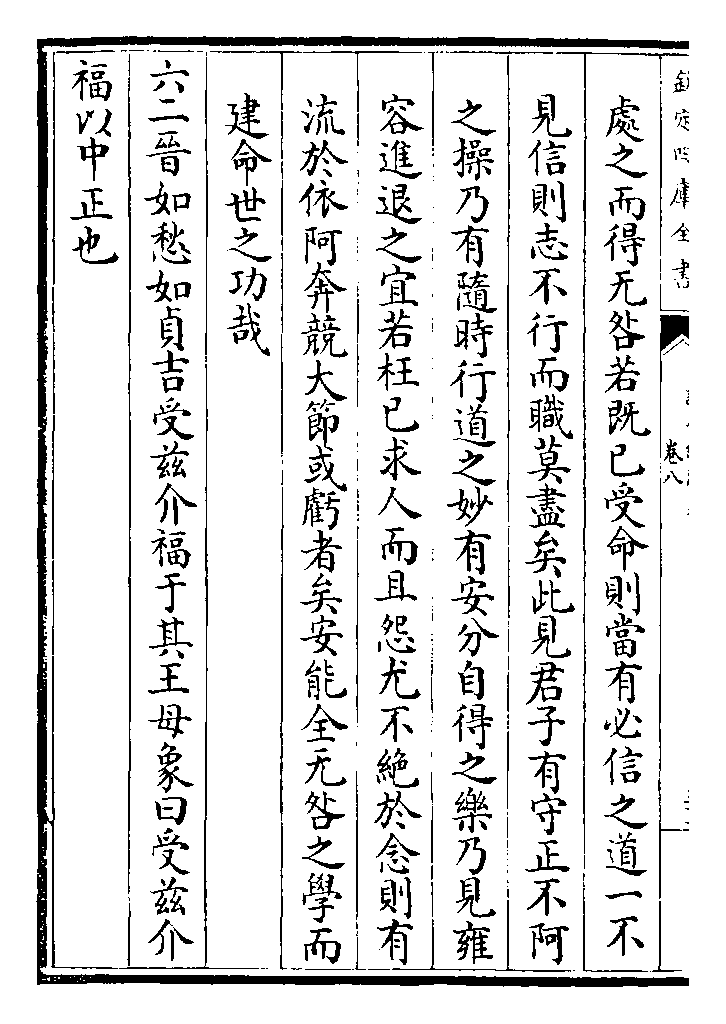 處之而得无咎若既已受命則當有必信之道一不
見信則志不行而職莫盡矣此見君子有守正不阿
之操乃有隨時行道之妙有安分自得之樂乃見雍
容進退之宜若枉已求人而且怨尤不絶於念則有
流於依阿奔競大節或虧者矣安能全无咎之學而
建命世之功哉
六二晉如愁如貞吉受兹介福于其王母象曰受兹介
福以中正也
欽定四庫全書
卷八